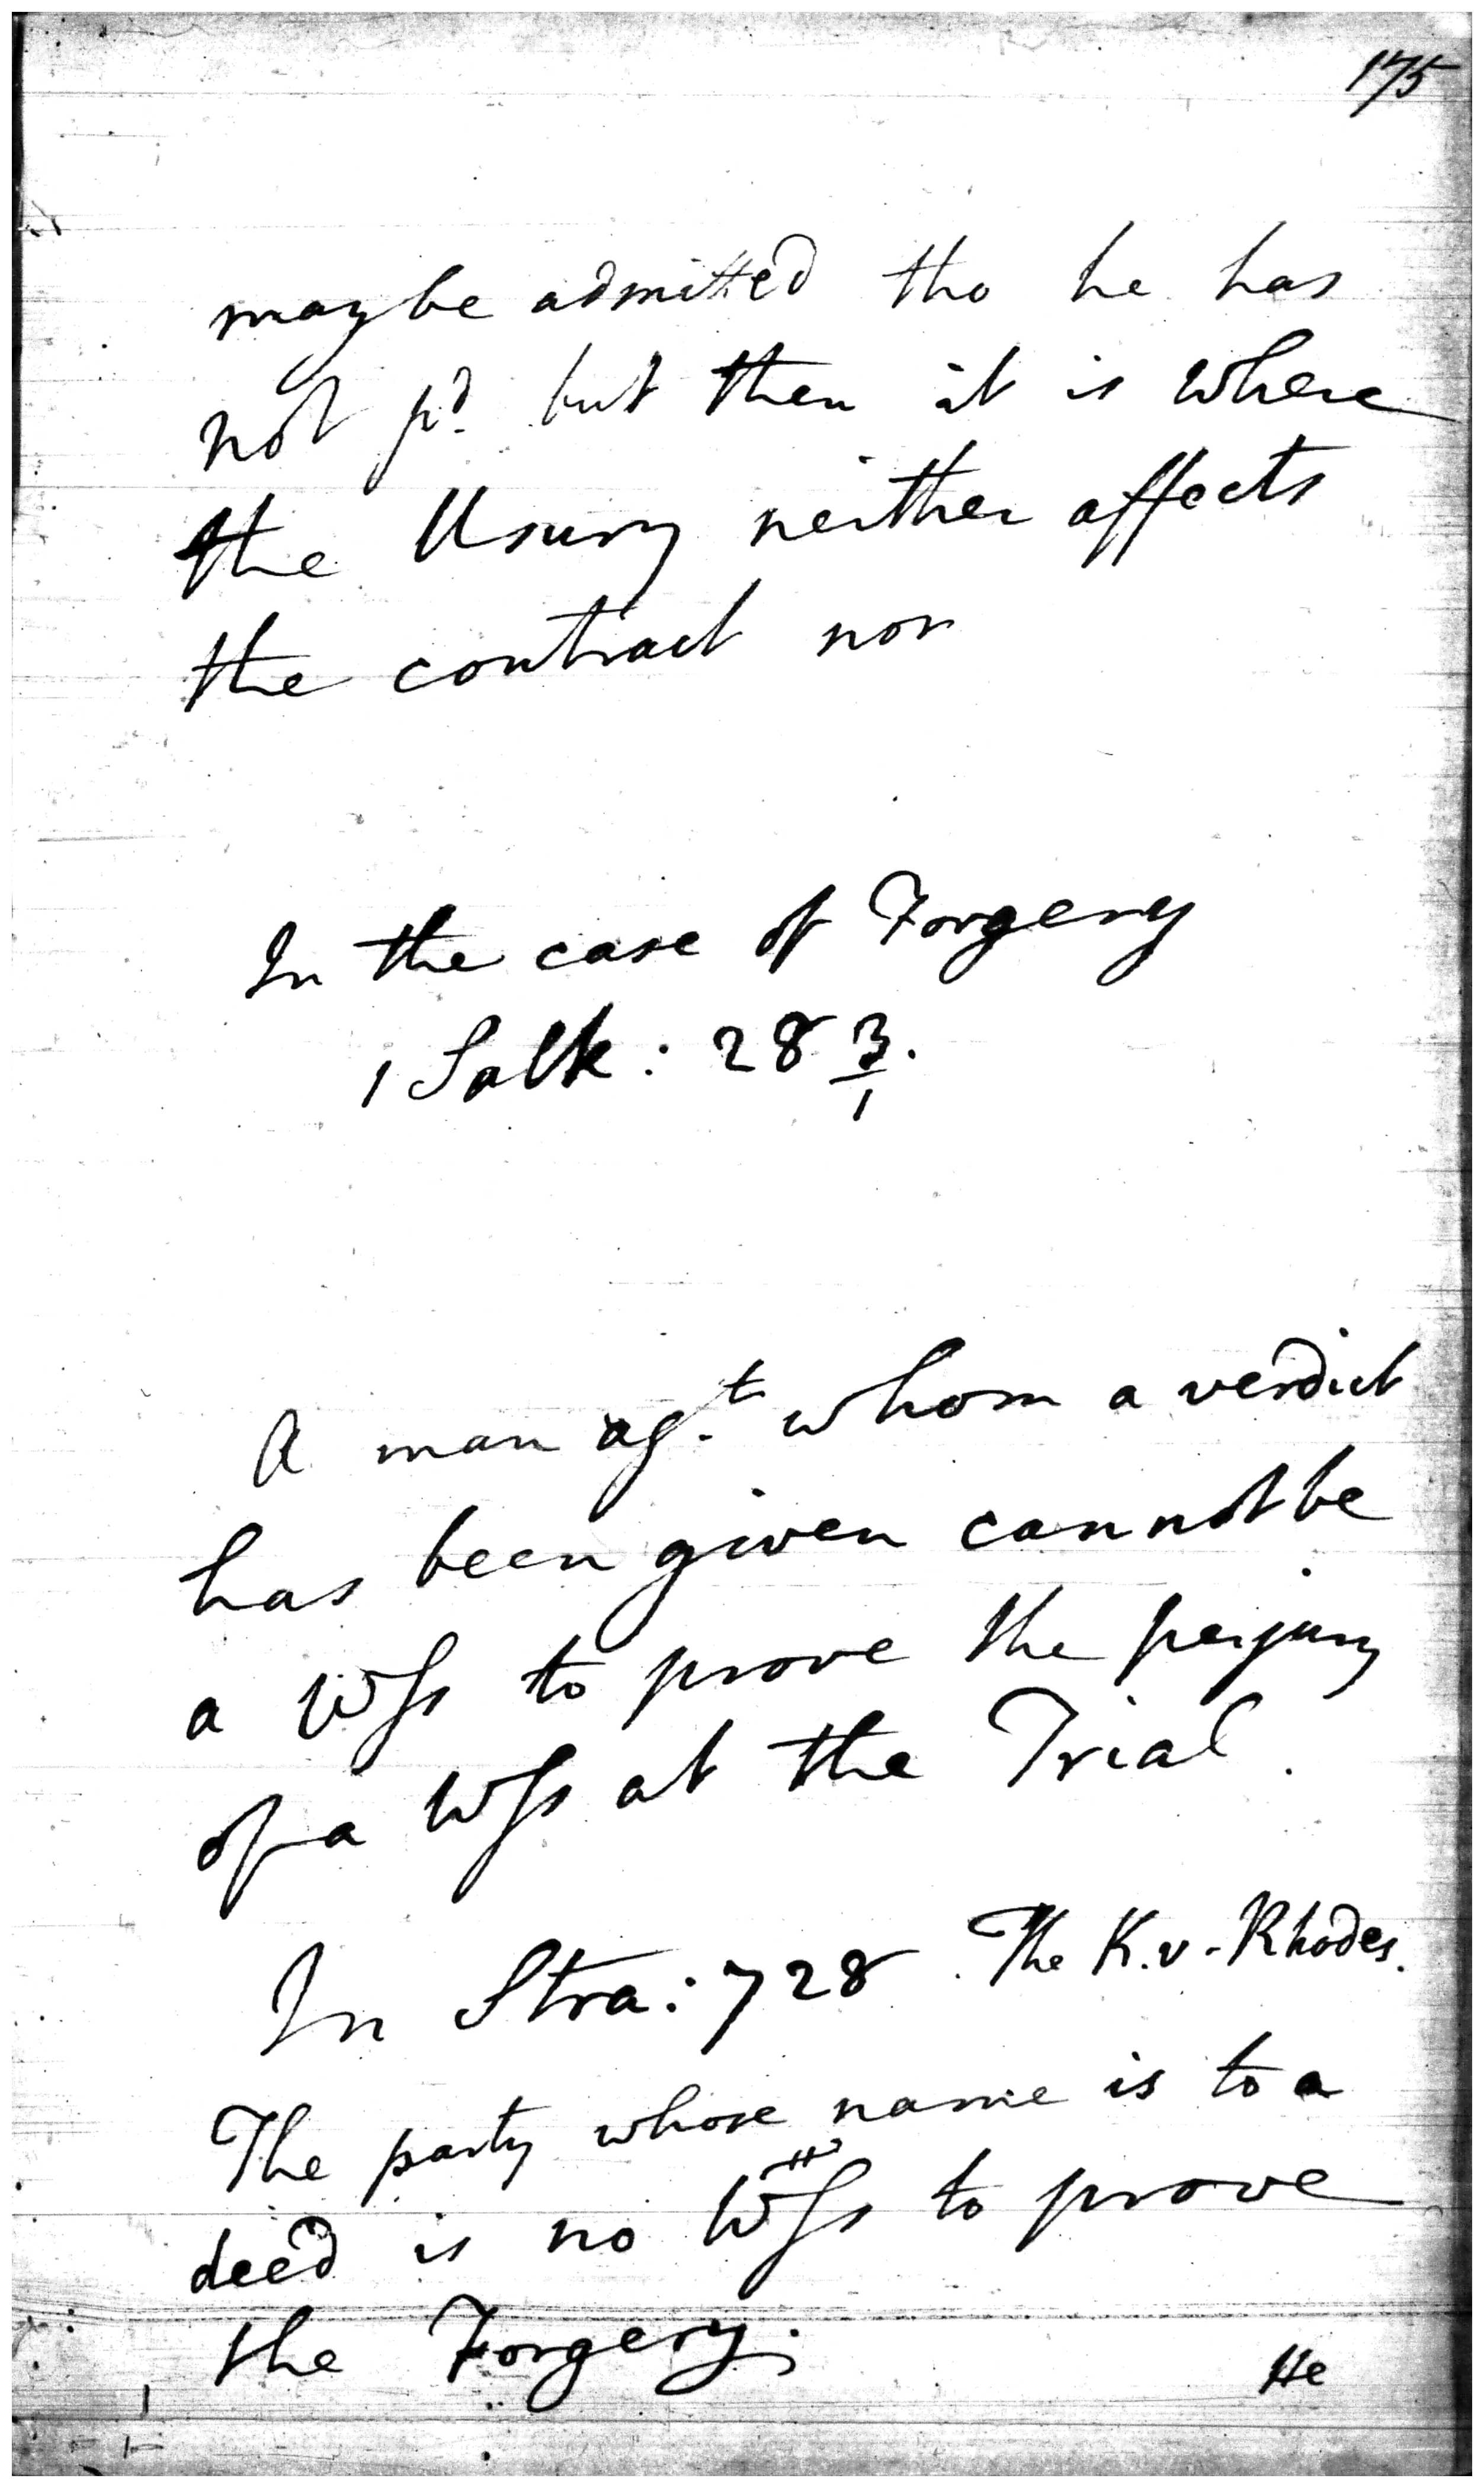 175
may be admitted tho he has
not pd. but then it is where
the Usury neither affects
the contract nor
In the case of Forgery
1 Salk: 283.
1
A man agt. whom a verdict
has been given cannot be
a Wss to prove the perjury
of a Wss at the Trial.
In Stra: 728. The K. v. Rhodes.
The party whose name is to a
deed is no Wss to prove
the Forgery.
He